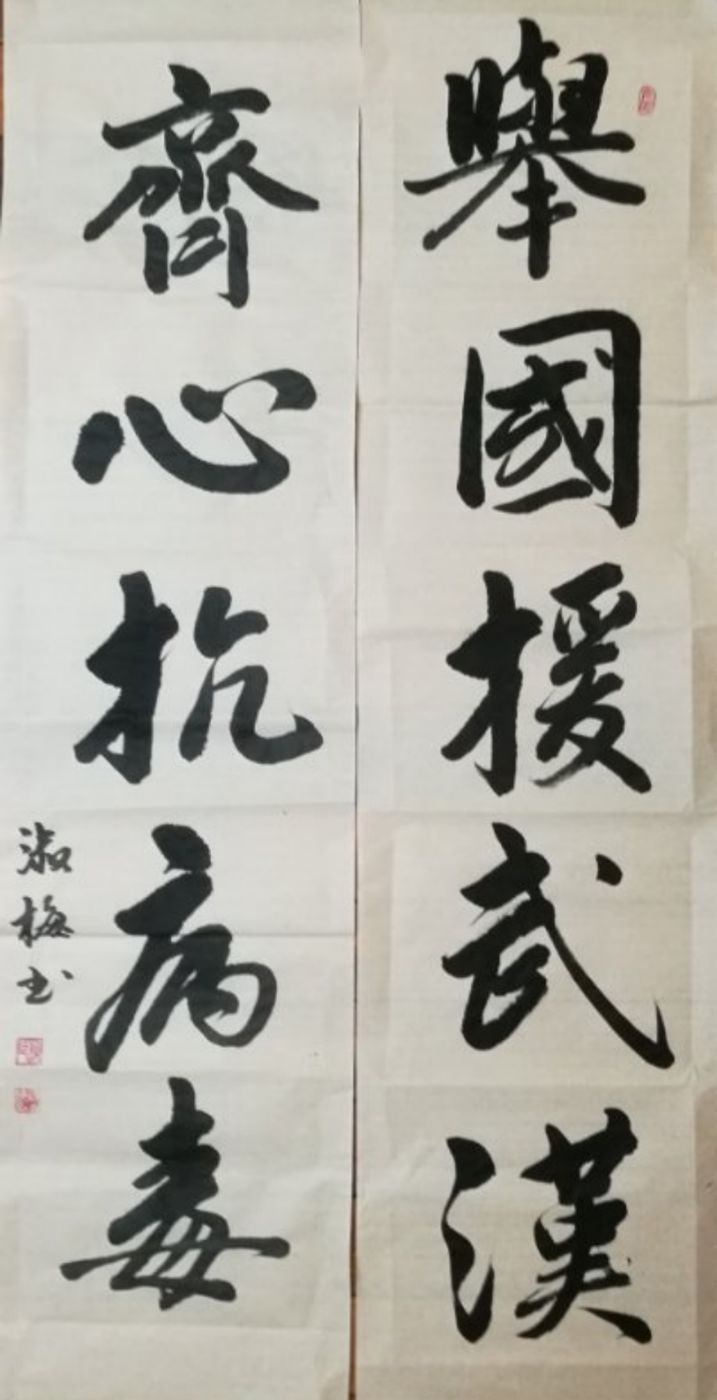 舉國援武漢
齊心抗病毒
淑梅书